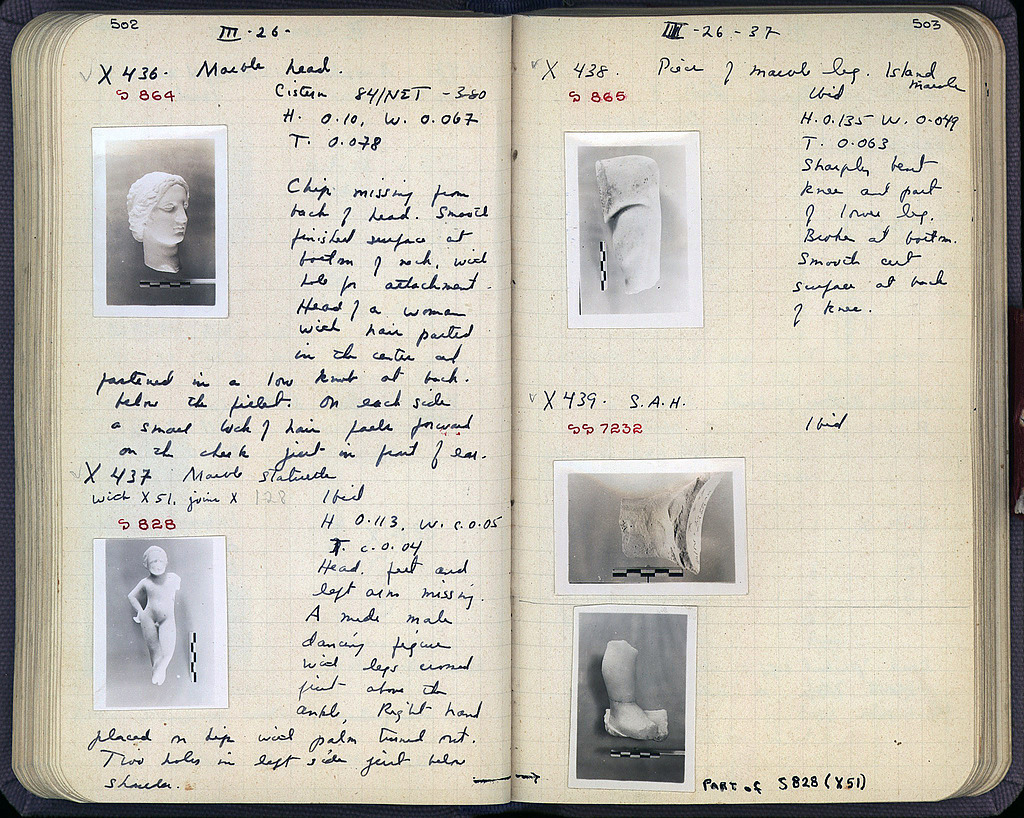 502
III - 26 -
X 436. Marble head.
S 864
Cistern 84/ΝΣΤ - 380
H. 0.10, W. 0.067
T. 0.078
Chip missing from
back of head. Smooth
finished surface at
bottom of neck, with
hole for attachment.
Head of a woman
with hair parted
in the center and
fastened in a low knob at back.
below the fillet. On each side
a small lock of hair falls forward
on the cheek just in front of ear.
X 437 Marble statuette
with X 51, joins X 128
Ibid
S 828
H 0.113, W. c. 0.05
T. c. 0.04
Head, feet and
left arm missing.
A nude male
dancing figure
with legs crossed
just above the
ankle, Right hand
placed on hip with palm turned out.
Two holes in left side just below
shoulder.
503
III - 26 - 37
X 438. Piece of marble leg. Island
marble
S 865
Ibid
H. 0.135 W. 0.049
T. 0.063
Sharply bent
knee and part
of lower leg.
Broken at bottom.
Smooth cut
surface at back
of knee.
X 439. S.A.H.
SS 7232
Ibid
PART of S 828 (X51)